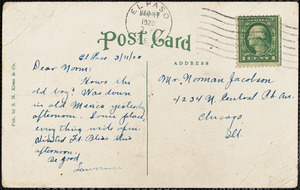 EL PASO
MAR 11
1920
Post Card
ADDRESS
1 CENT 1
El Paso 3/11/20
Dear Norm:
Hows the
old boy? Was down
in old Mexico yesterday
afternoon. Some place,
everything wide open.
Visited Ft. Bliss this
afternoon.
Be good
Lawrence
Mr. Norman Jacobson
4234 N. Central Pk. Ave.
Chicago
Ill.
Pub. by S. H. Kress & Co.